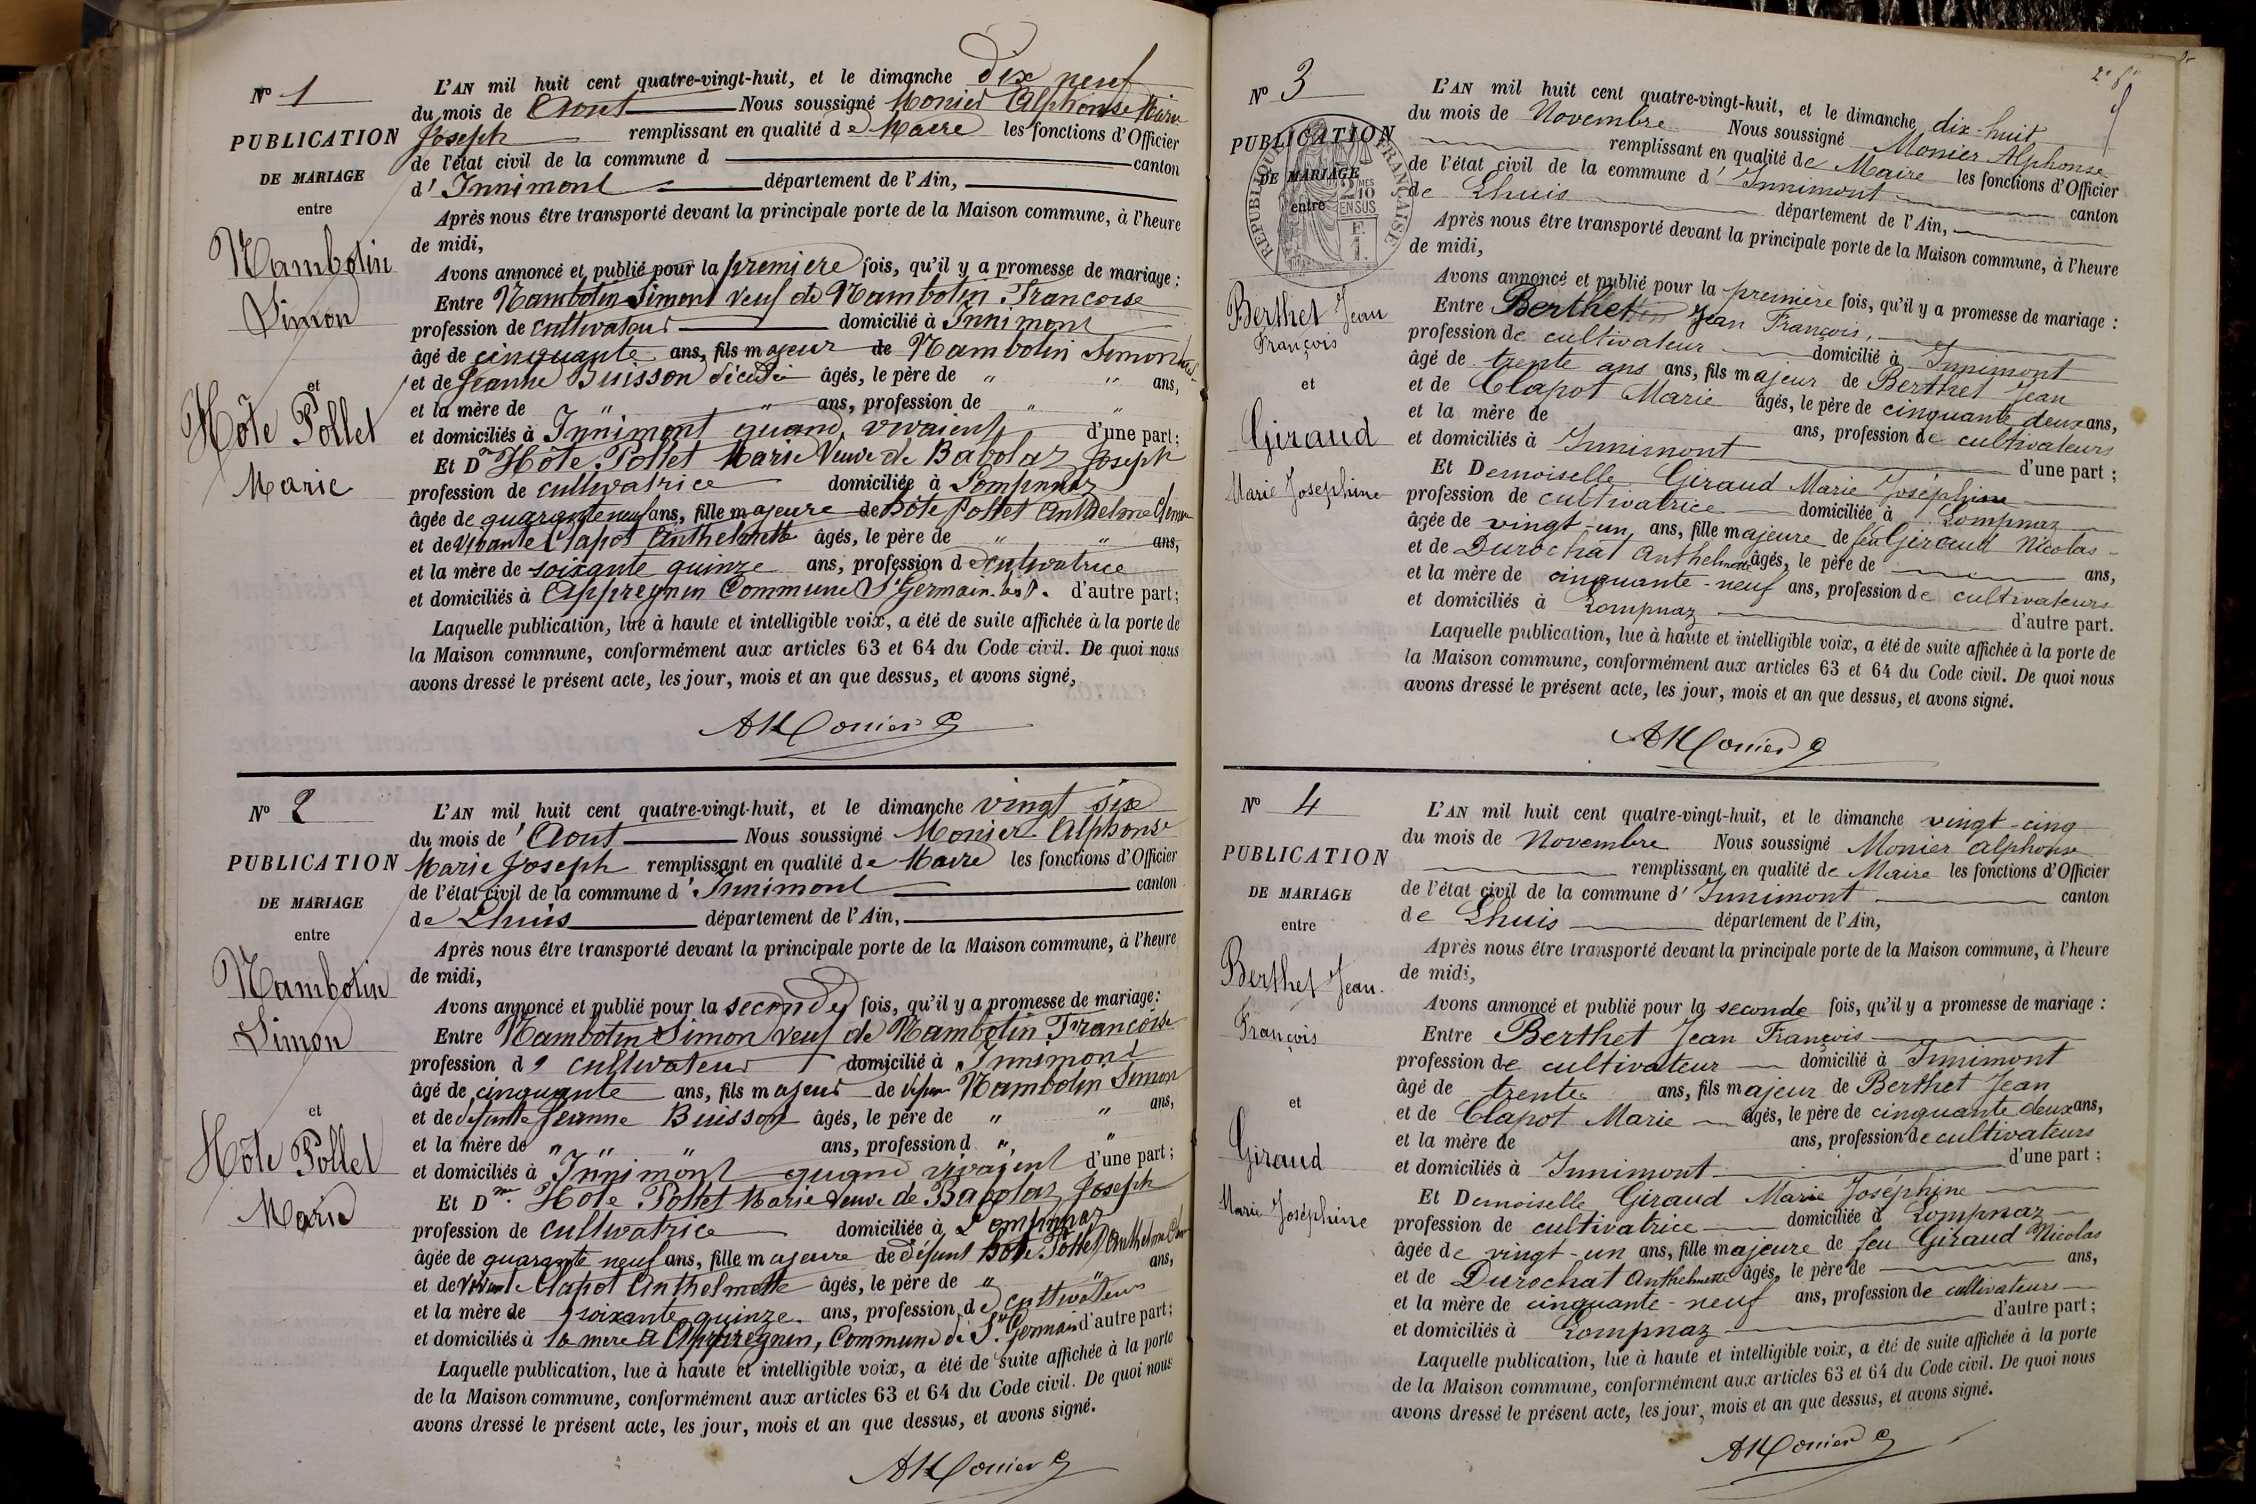 N° 1
PUBLICATION
DE MARIAGE
entre
Mambotin
Simon
et
Hôte Pollet
Marie
L'AN mil huit cent quatre-vingt-huit, et le dimanche dix neuf
du mois de Aout Nous soussigné Monier Alphonse Marie
Joseph remplissant en qualité de Maire les fonctions d'Officier
de l'état civil de la commune d canton
d'Innimont département de l'Ain,
Après nous être transporté devant la principale porte de la Maison commune, à l'heure
de midi,
Avons annoncé et publié pour la première fois, qu'il y a promesse de mariage :
Entre Mambotin Simont veuf de Mambotin Francoise
profession de cultivateur domicilié à Innimont
âgé de cinquante ans, fils majeur de Mambotin Simon
et de Jeanne Buisson décédée âgés, le père de " " ans,
et la mère de " " ans, profession de " "
et domiciliés à Innimont quand vivaient d'une part;
Et Dme Hôte Pollet Marie Veuve de Babolaz Joseph
profession de cultivatrice domiciliée à Lompnaz
âgée de quarante neuf ans, fille majeure de Hôte Pollet Anthelme
et de vivante Clapot Anthelmette âgés, le père de " " ans,
et la mère de soixante quinze ans, profession de cultivatrice
et domiciliés à Appregnin Commune St Germain d'autre part;
Laquelle publication, lue à haute et intelligible voix, a été de suite affichée à la porte de
la Maison commune, conformément aux articles 63 et 64 du Code civil. De quoi nous
avons dressé le présent acte, les jour, mois et an que dessus, et avons signé,
AMonier
N° 2
PUBLICATION
DE MARIAGE
entre
Mambotin
Simon
et
Hôte Pollet
Marie
L'AN mil huit cent quatre-vingt-huit, et le dimanche vingt six
du mois de Aout Nous soussigné Monier Alphonse
Marie Joseph remplissant en qualité de Maire les fonctions d'Officier
de l'état civil de la commune d'Innimont canton
de Lhuis département de l'Ain,
Après nous être transporté devant la principale porte de la Maison commune, à l'heure
de midi,
Avons annoncé et publié pour la seconde fois, qu'il y a promesse de mariage:
Entre Mambotin Simon veuf de Mambotin Francoise
profession de cultivateur domicilié à Innimont
âgé de cinquante ans, fils majeur de Mambotin Simon
et de défunte Jeanne Buisson âgés, le père de " " ans,
et la mère de " " " ans, profession d " "
et domiciliés à Innimont quand vivaient d'une part;
Et Dme Hote Pollet Marie Veuve de Babolaz Joseph
profession de cultivatrice domiciliée à Lompnaz
âgée de quarante neuf ans, fille majeure de défunt Hote Pollet Anthelme
et de vivante Clapot Anthelmette âgés, le père de " " ans,
et la mère de soixante quinze ans, profession de cultivateurs
et domiciliés à la mere à Appregnin, Commune de St Germain d'autre part;
Laquelle publication, lue à haute et intelligible voix, a été de suite affichée à la porte
de la Maison commune, conformément aux articles 63 et 64 du Code civil. De quoi nous
avons dressé le présent acte, les jour, mois et an que dessus, et avons signé.
AMonier
N° 3
PUBLICATION
DE MARIAGE
entre
RÉPUBLIQUE FRANÇAISE
Berthet Jean
François
et
Giraud
Marie Josephine
L'AN mil huit cent quatre-vingt-huit, et le dimanche dix-huit
du mois de Novembre Nous soussigné Monier Alphonse
remplissant en qualité de Maire les fonctions d'Officier
de l'état civil de la commune d'Innimont canton
de Lhuis département de l'Ain,
Après nous être transporté devant la principale porte de la Maison commune, à l'heure
de midi,
Avons annoncé et publié pour la première fois, qu'il y a promesse de mariage :
Entre Berthet Jean François,
profession de cultivateur domicilié à Innimont
âgé de trente ans ans, fils majeur de Berthet Jean
et de Clapot Marie âgés, le père de cinquante deux ans,
et la mère de ans, profession de cultivateurs
et domiciliés à Innimont d'une part ;
Et Demoiselle Giraud Marie Joséphine
profession de cultivatrice domiciliée à Lompnaz
âgée de vingt-un ans, fille majeure de feu Giraud Nicolas
et de Durochat Anthelmette âgés, le père de ans,
et la mère de cinquante-neuf ans, profession de cultivateurs
et domiciliés à Lompnaz d'autre part.
Laquelle publication, lue à haute et intelligible voix, a été de suite affichée à la porte de
la Maison commune, conformément aux articles 63 et 64 du Code civil. De quoi nous
avons dressé le présent acte, les jour, mois et an que dessus, et avons signé.
AMonier
N° 4
PUBLICATION
DE MARIAGE
entre
Berthet Jean
François
et
Giraud
Marie Joséphine
L'AN mil huit cent quatre-vingt-huit, et le dimanche vingt-cinq
du mois de Novembre Nous soussigné Monier Alphonse
remplissant en qualité de Maire les fonctions d'Officier
de l'état civil de la commune d'Innimont canton
de Lhuis département de l'Ain,
Après nous être transporté devant la principale porte de la Maison commune, à l'heure
de midi,
Avons annoncé et publié pour la seconde fois, qu'il y a promesse de mariage :
Entre Berthet Jean François
profession de cultivateur domicilié à Innimont
âgé de trente ans, fils majeur de Berthet Jean
et de Clapot Marie âgés, le père de cinquante deux ans,
et la mère de ans, profession de cultivateurs
et domiciliés à Innimont d'une part ;
Et Demoiselle Giraud Marie Joséphine
profession de cultivatrice domiciliée à Lompnaz
âgée de vingt-un ans, fille majeure de feu Giraud Nicolas
et de Durochat Anthelmette âgés, le père de ans,
et la mère de cinquante-neuf ans, profession de cultivateurs
et domiciliés à Lompnaz d'autre part ;
Laquelle publication, lue à haute et intelligible voix, a été de suite affichée à la porte
de la Maison commune, conformément aux articles 63 et 64 du Code civil. De quoi nous
avons dressé le présent acte, les jour, mois et an que dessus, et avons signé.
AMonier